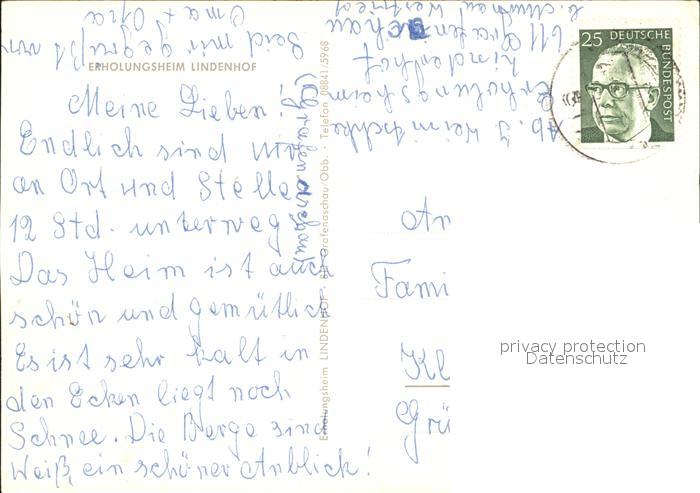 Oma + Opa
Seid mir gegrüßt von
ERHOLUNGSHEIM LINDENHOF
Meine Lieben!
Endlich sind wir
an Ort und Stelle
12 Std. unterweg
Das Heim ist auch
schön und gemütlich
Es ist sehr kalt in
den Ecken liegt noch
Schnee. Die Berge sind
Weiß, ein schöner Anblick!
(Grafenaschau
Erholungsheim LINDENHOF · 811 Grafenaschau/Obb. · Telefon 08841/5968
Ab. J
Erholungsheim
Lindenhof
811 Grafenaschau
25 DEUTSCHE
BUNDESPOST
An
Fami
Kl
Grü
privacy protection
Datenschutz